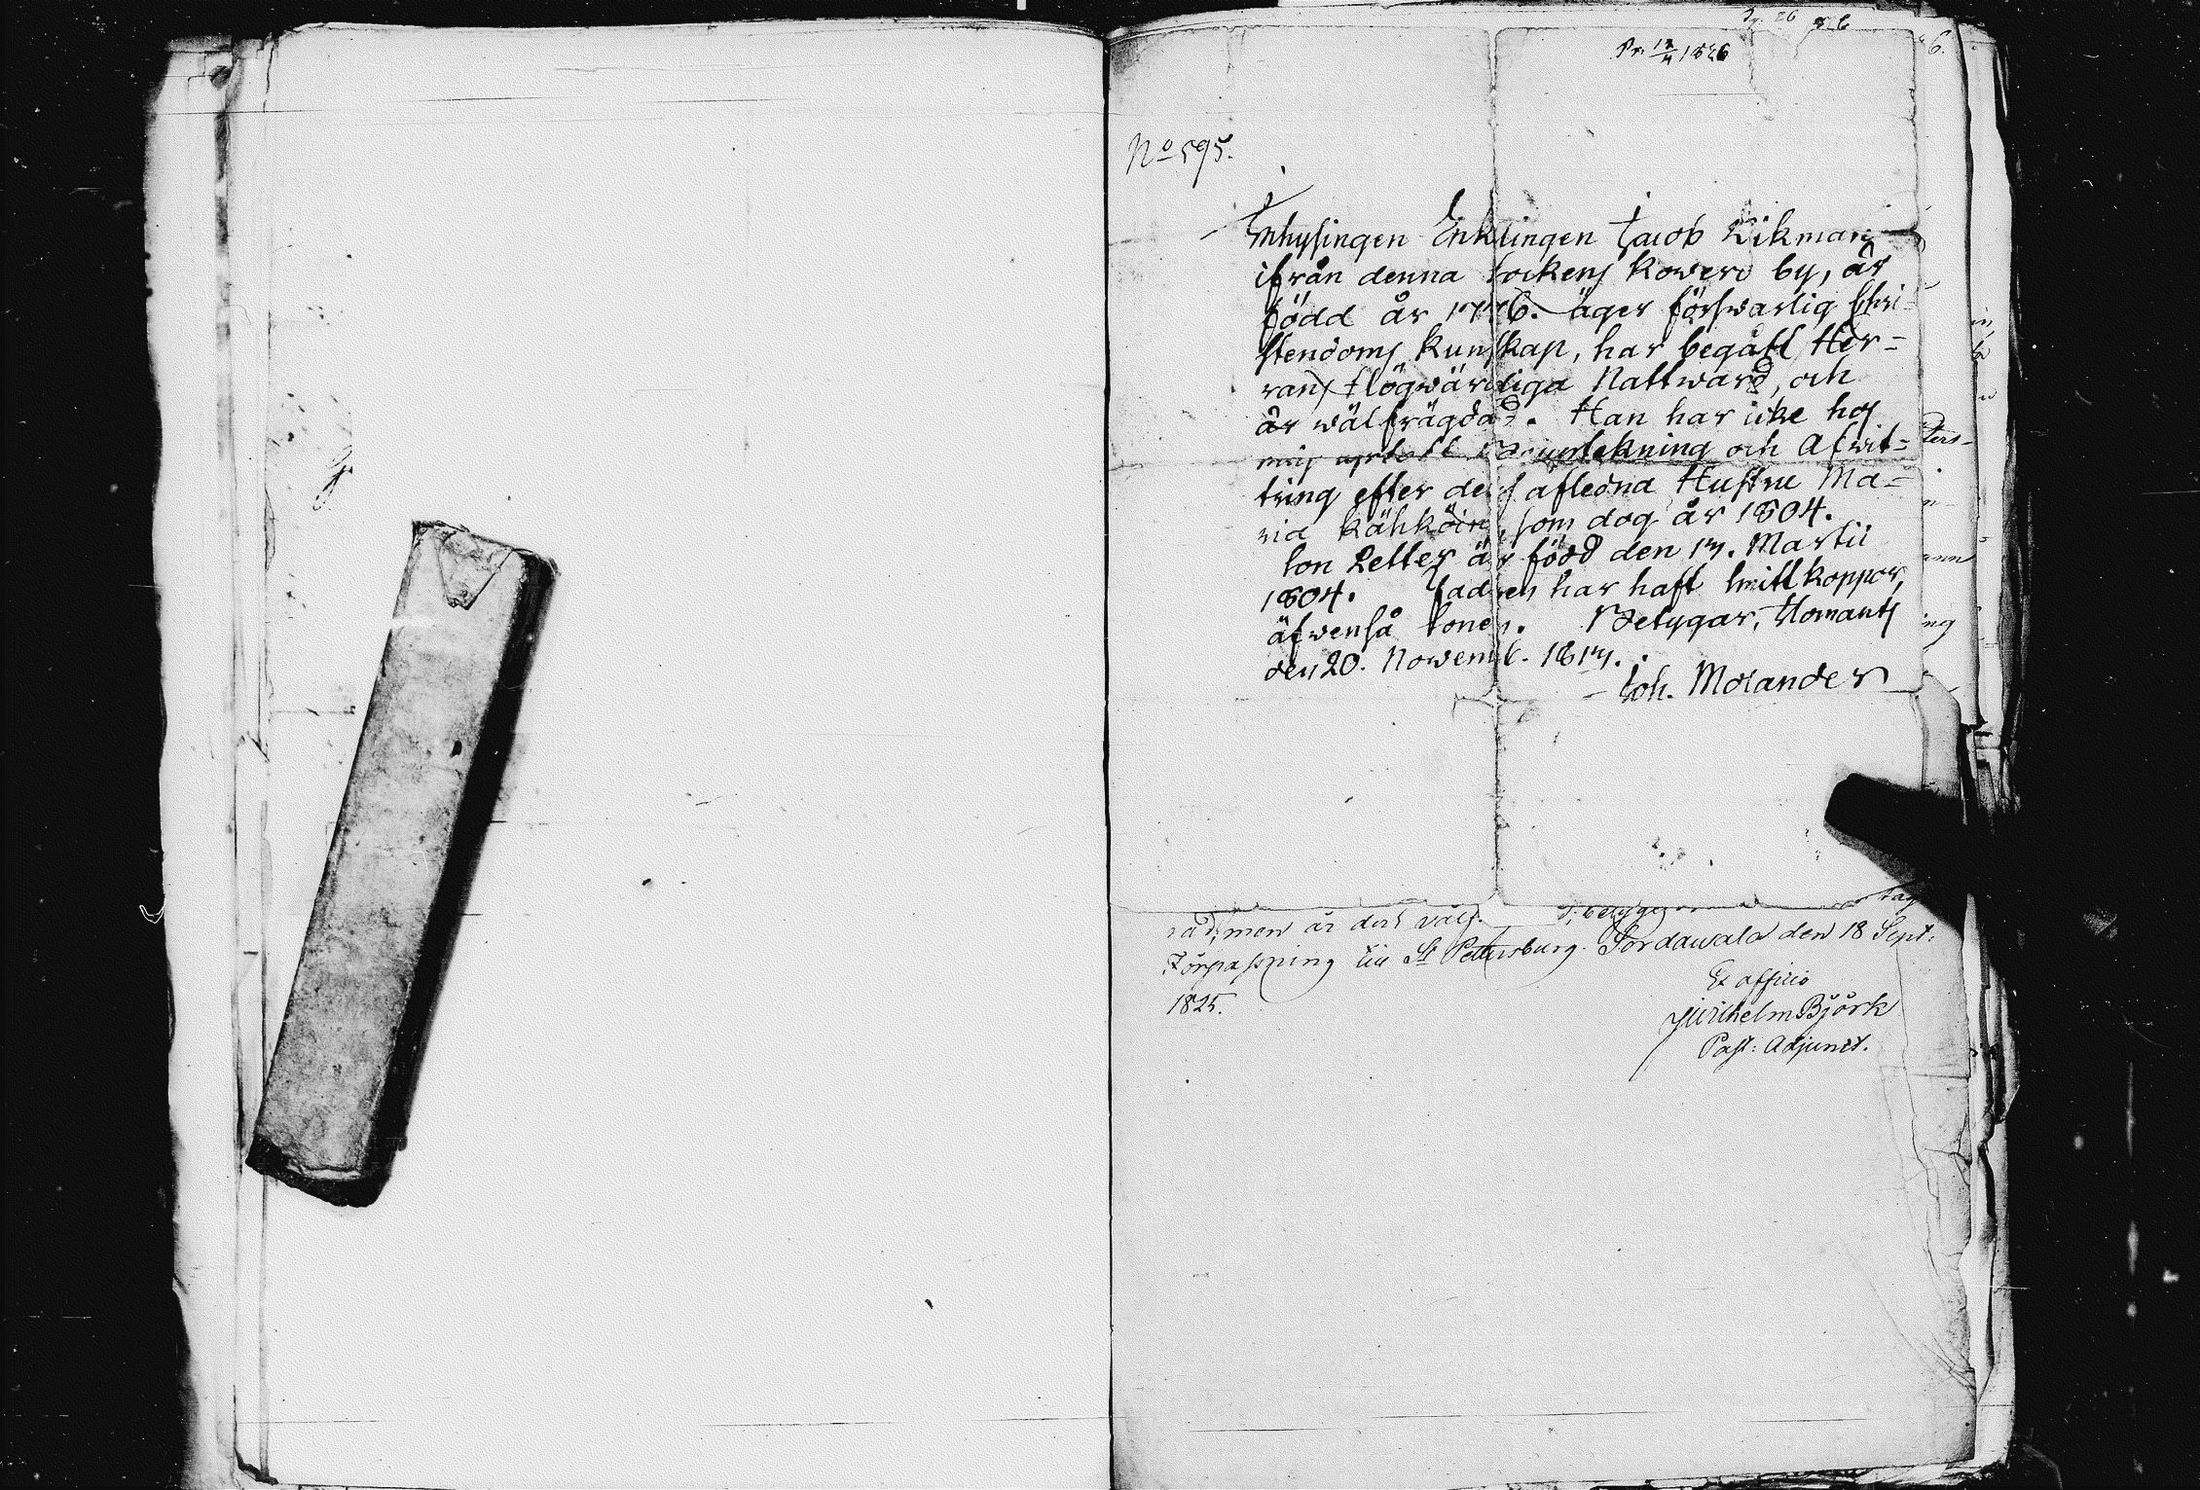 Pr. 12/4 1826
6.
No 595.
Inhysingen Enklingen Jacob Dikman
ifrån denna Sockens Kowero by, är
född år 1776. äger förswarlig Chri-
stendoms Kunskap, har begått Her-
rans Högwärdiga Nattward, och
är wälfrägdad. Han har icke hos
mig upteett Bouptekning och Afwit-
tring efter dess afledna Hustru Ma-
ria Kähköin, som dog år 1804.
Son Petter är född den 17. Martii
1804. Fadren har haft Smittkoppor,
äfwenså Sonen. Betygar, Ilomants
den 20. Novemb. 1817.
Joh. Molander
men är det
Förpassning till St Pettersburg. Sordawala den 18 Sept:
1825.
Ex officio
Wilhelm Björk
Past: Adjunct.